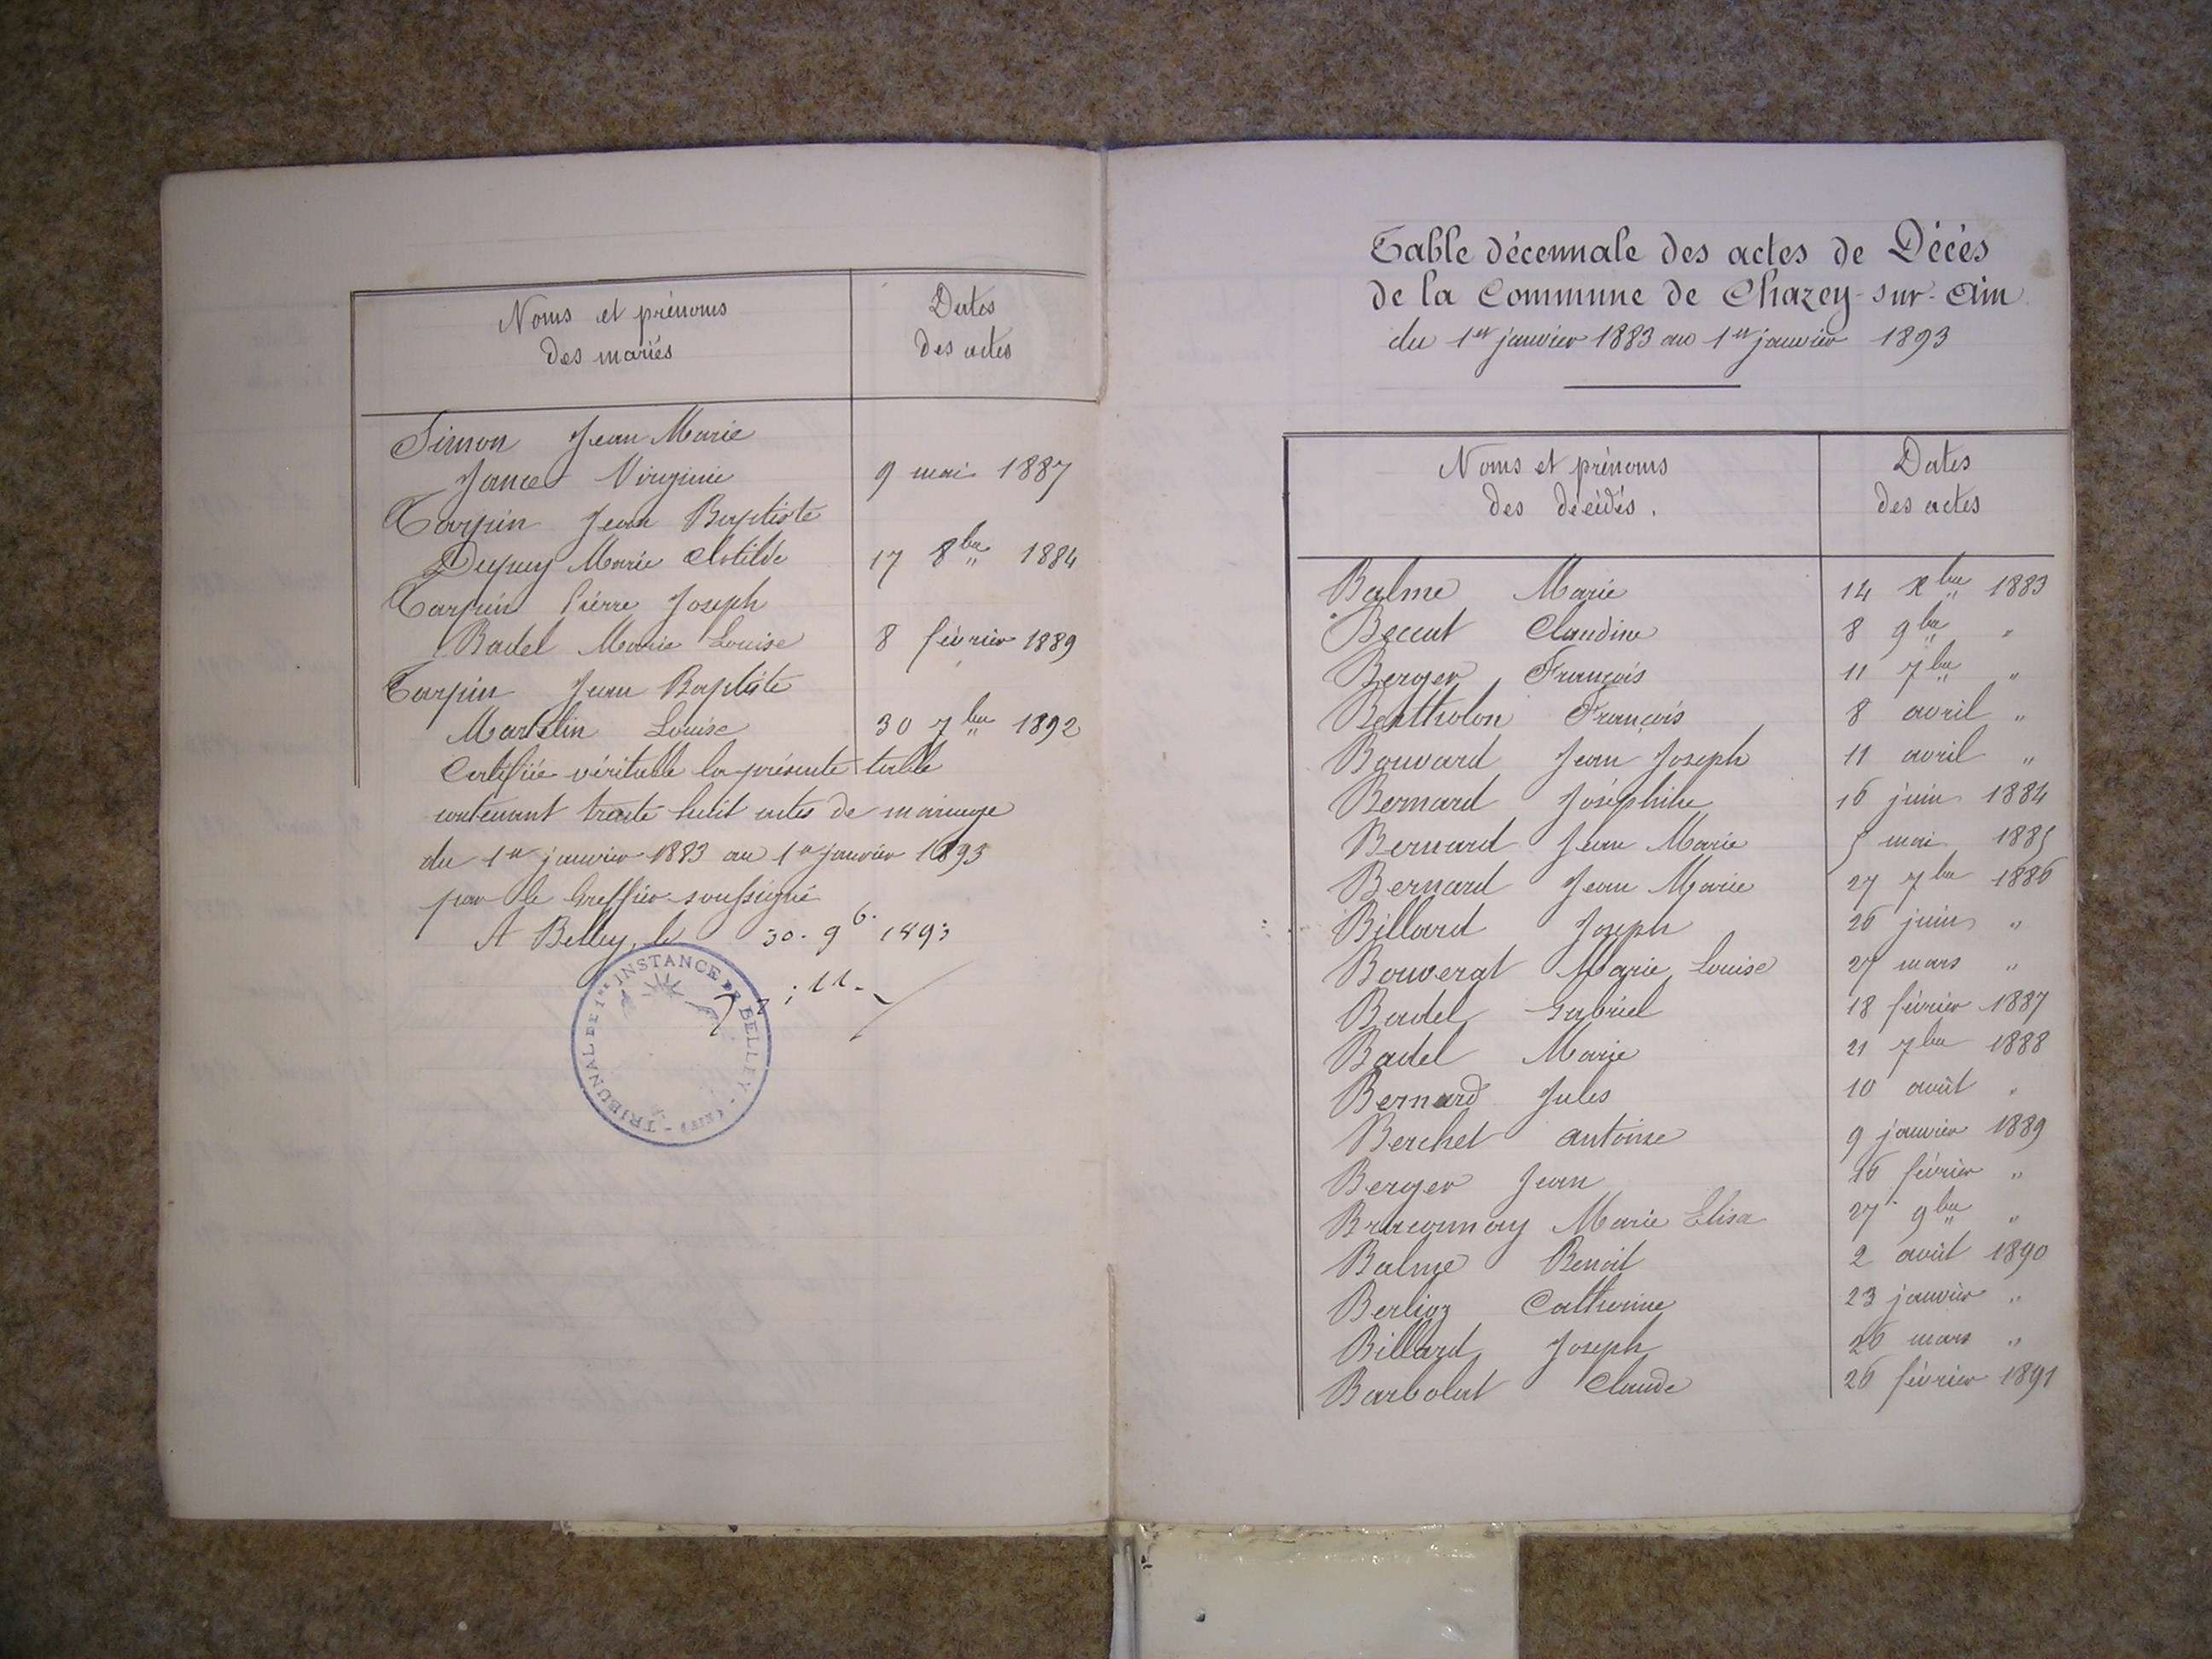 Noms et prénoms
des mariés
Dates
des actes
Simon Jean Marie
Jance Virginie 9 mai 1887
Tarpin Jean Baptiste
Dupuy Marie Clotilde 17 8bre 1884
Tarpin Pierre Joseph
Badel Marie Louise 8 février 1889
Tarpin Jean Baptiste
Martelin Louise 30 7bre 1892
Certifiée véritable la présente table
contenant trente huit actes de mariage
du 1er janvier 1883 au 1er janvier 1893
par le Greffier soussigné
A Belley, le 30. 9b. 1893
TRIBUNAL DE 1re INSTANCE DE BELLEY - (AIN) -
Table décennale des actes de Décès
de la Commune de Chazey-sur-Ain
du 1er janvier 1883 au 1er janvier 1893
Noms et prénoms
des décédés.
Dates
des actes
Balme Marie 14 xbre 1883
Beccat Claudine 8 9bre "
Berger François 11 7bre "
Bertholon François 8 avril "
Bouvard Jean Joseph 11 avril "
Bernard Joséphine 16 juin 1884
Bernard Jean Marie 5 mai 1885
Bernard Jean Marie 27 7bre 1886
Billard Joseph 26 juin "
Bouverat Marie Louise 27 mars "
Badel Gabriel 18 février 1887
Badel Marie 21 7bre 1888
Bernard Jules 10 août "
Berchet Antoine 9 janvier 1889
Berger Jean 16 février "
Braconnay Marie Elisa 27 9bre "
Balme Benoit 2 août 1890
Berlioz Catherine 23 janvier "
Billard Joseph 26 mars "
Barbolat Claude 26 février 1891